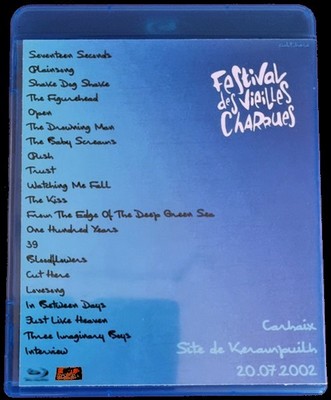 Seventeen Seconds
Plainsong
Shake Dog Shake
The Figurehead
Open
The Drowning Man
The Baby Screams
Push
Trust
Watching Me Fall
The Kiss
From The Edge Of The Deep Green Sea
One Hundred Years
39
Bloodflowers
Cut Here
Lovesong
In Between Days
Just Like Heaven
Three Imaginary Boys
Interview
Festival
des Vieilles
Charrues
Carhaix
Site de Kerampuilh
20.07.2002